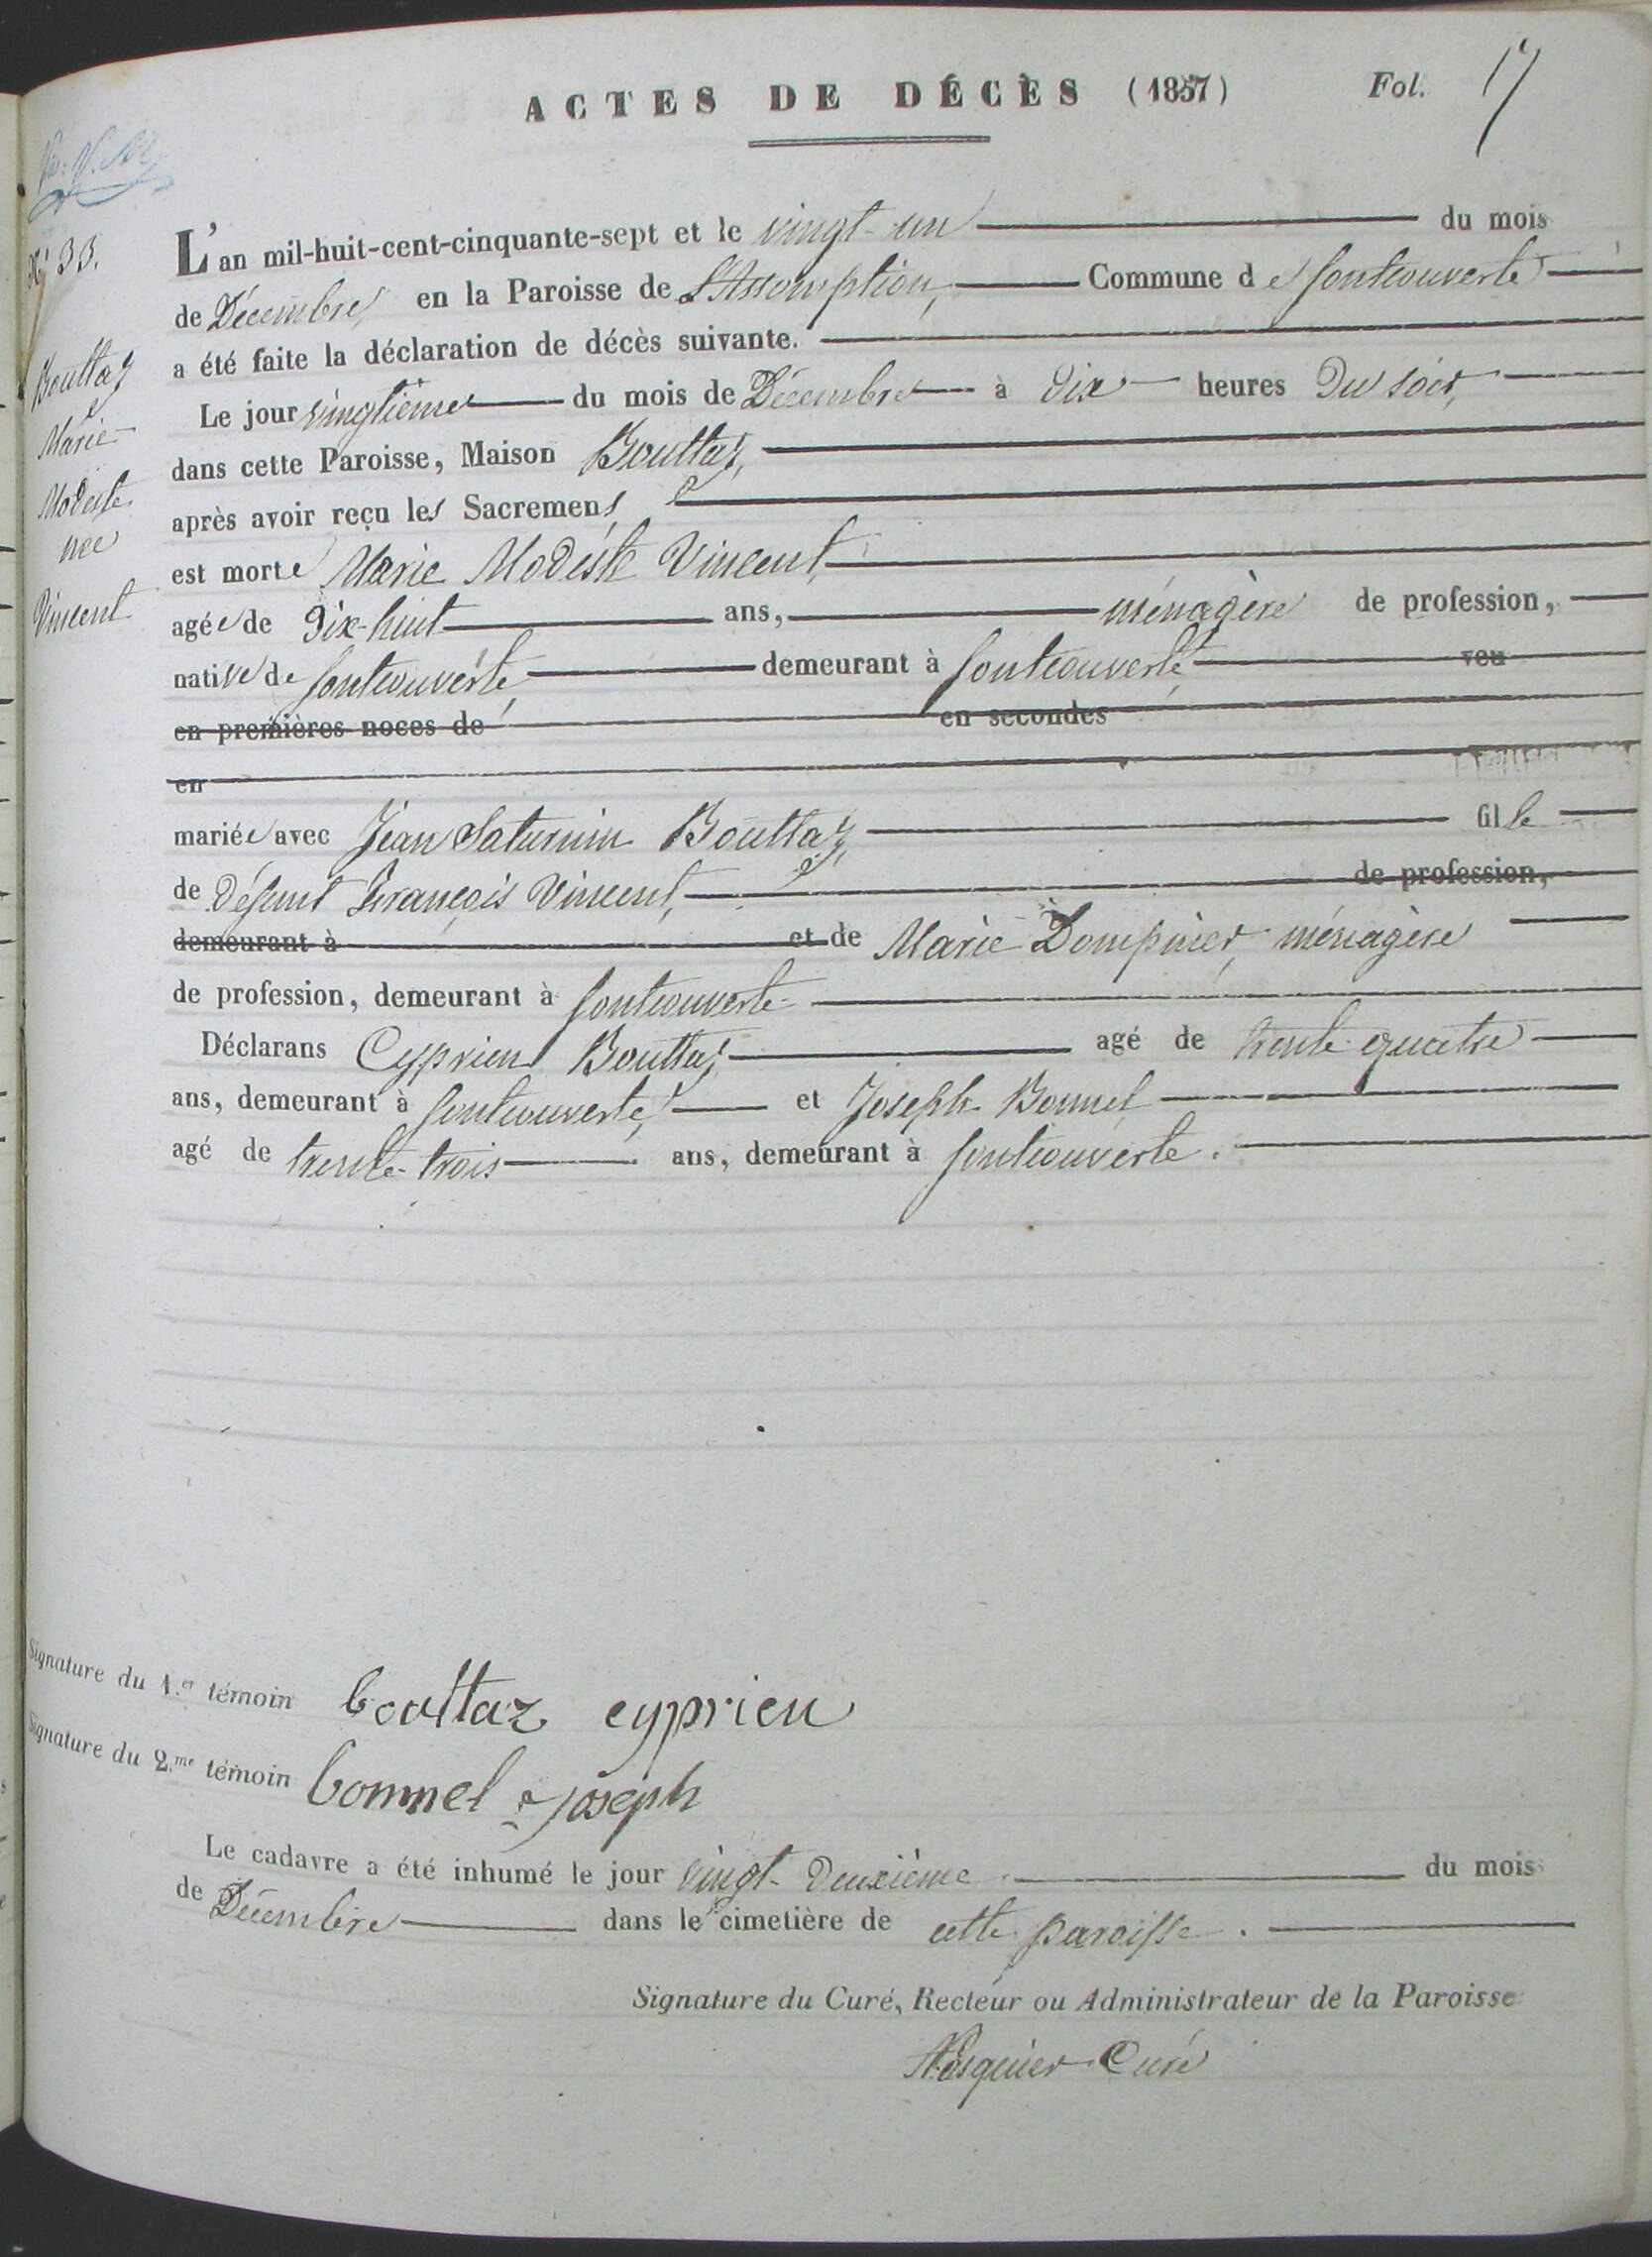 ACTES DE DÉCÈS (1857) Fol. 17
N° 33.
Bouttaz
Marie
Modeste
née
Vincent
L'an mil-huit-cent-cinquante-sept et le vingt-un du mois
de Décembre, en la Paroisse de L'Assomption, Commune de fontcouverte
a été faite la déclaration de décès suivante.
Le jour vingtième du mois de Décembre à dix heures du soir,
dans cette Paroisse, Maison Bouttaz,
après avoir reçu les Sacremens,
est morte Marie Modeste Vincent,
agée de dix-huit ans, ménagère de profession,
native de fontcouverte, demeurant à fontcouverte, veu
en premières noces de en secondes
en
mariée avec Jean Saturnin Bouttaz, fille
de défunt François Vincent, de profession,
demeurant à et de Marie Dompnier, ménagère
de profession, demeurant à fontcouverte
Déclarans Cyprien Bouttaz agé de trente-quatre
ans, demeurant à fontcouverte, et Joseph Bonnel
agé de trente-trois ans, demeurant à fontcouverte.
Signature du 1.er témoin bouttaz cyprien
Signature du 2.me témoin bonnel joseph
Le cadavre a été inhumé le jour vingt-deuxième du mois
de Décembre dans le cimetière de cette paroisse.
Signature du Curé, Recteur ou Administrateur de la Paroisse
Curé